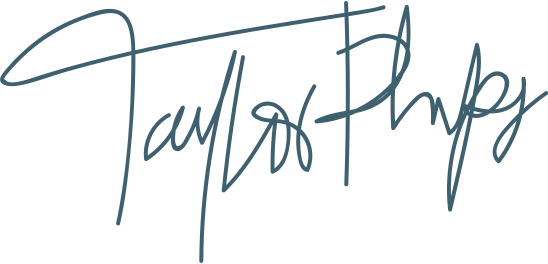 Taylor Phipps